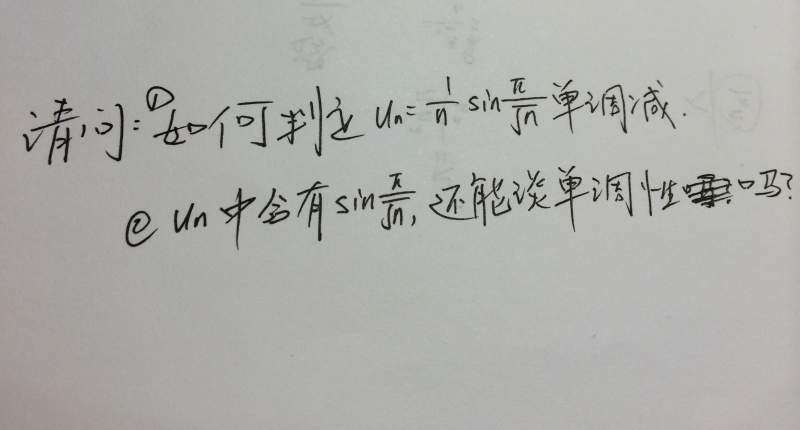 请问:①如何判定 uₙ=1/n sin π/√n 单调减.
② uₙ中含有 sin π/√n, 还能谈单调性吗?